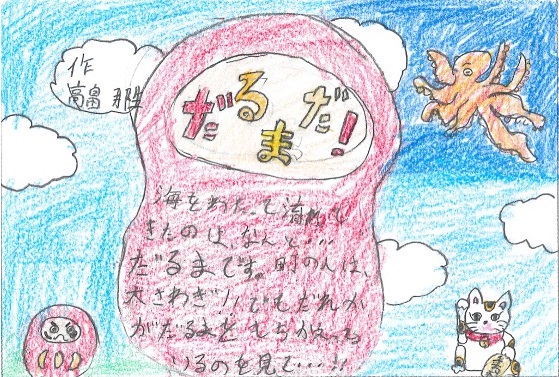 作
高畠 那生
だるまだ!
海をわたって流れて
きたのは、なんと・・・・・
だるまです。町の人は、
大さわぎ!!でもだれか
がだるまを
いるのを見て・・・・・!!